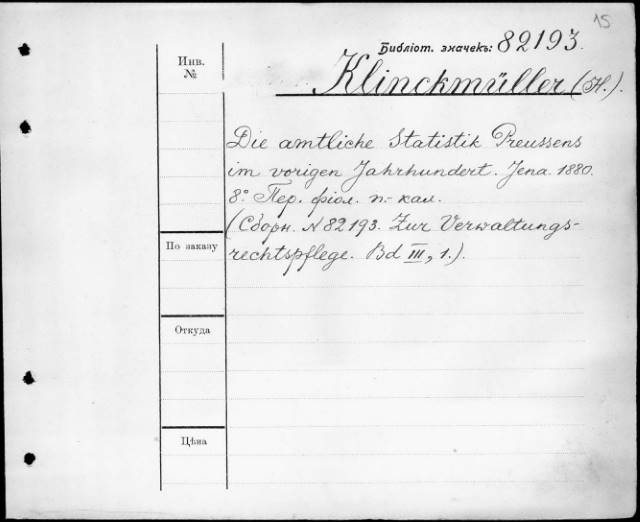 15
Библіот. значекъ: 82193.
Инв.
№
Klinckmüller (H.).
Die amtliche Statistik Preussens
im vorigen Jahrhundert. Jena. 1880.
8º Пер. фіол. п.-кал.
(Сборн. N 82193. Zur Verwaltungs-
rechtspflege. Bd III, 1.).
По заказу
Откуда
Цѣна